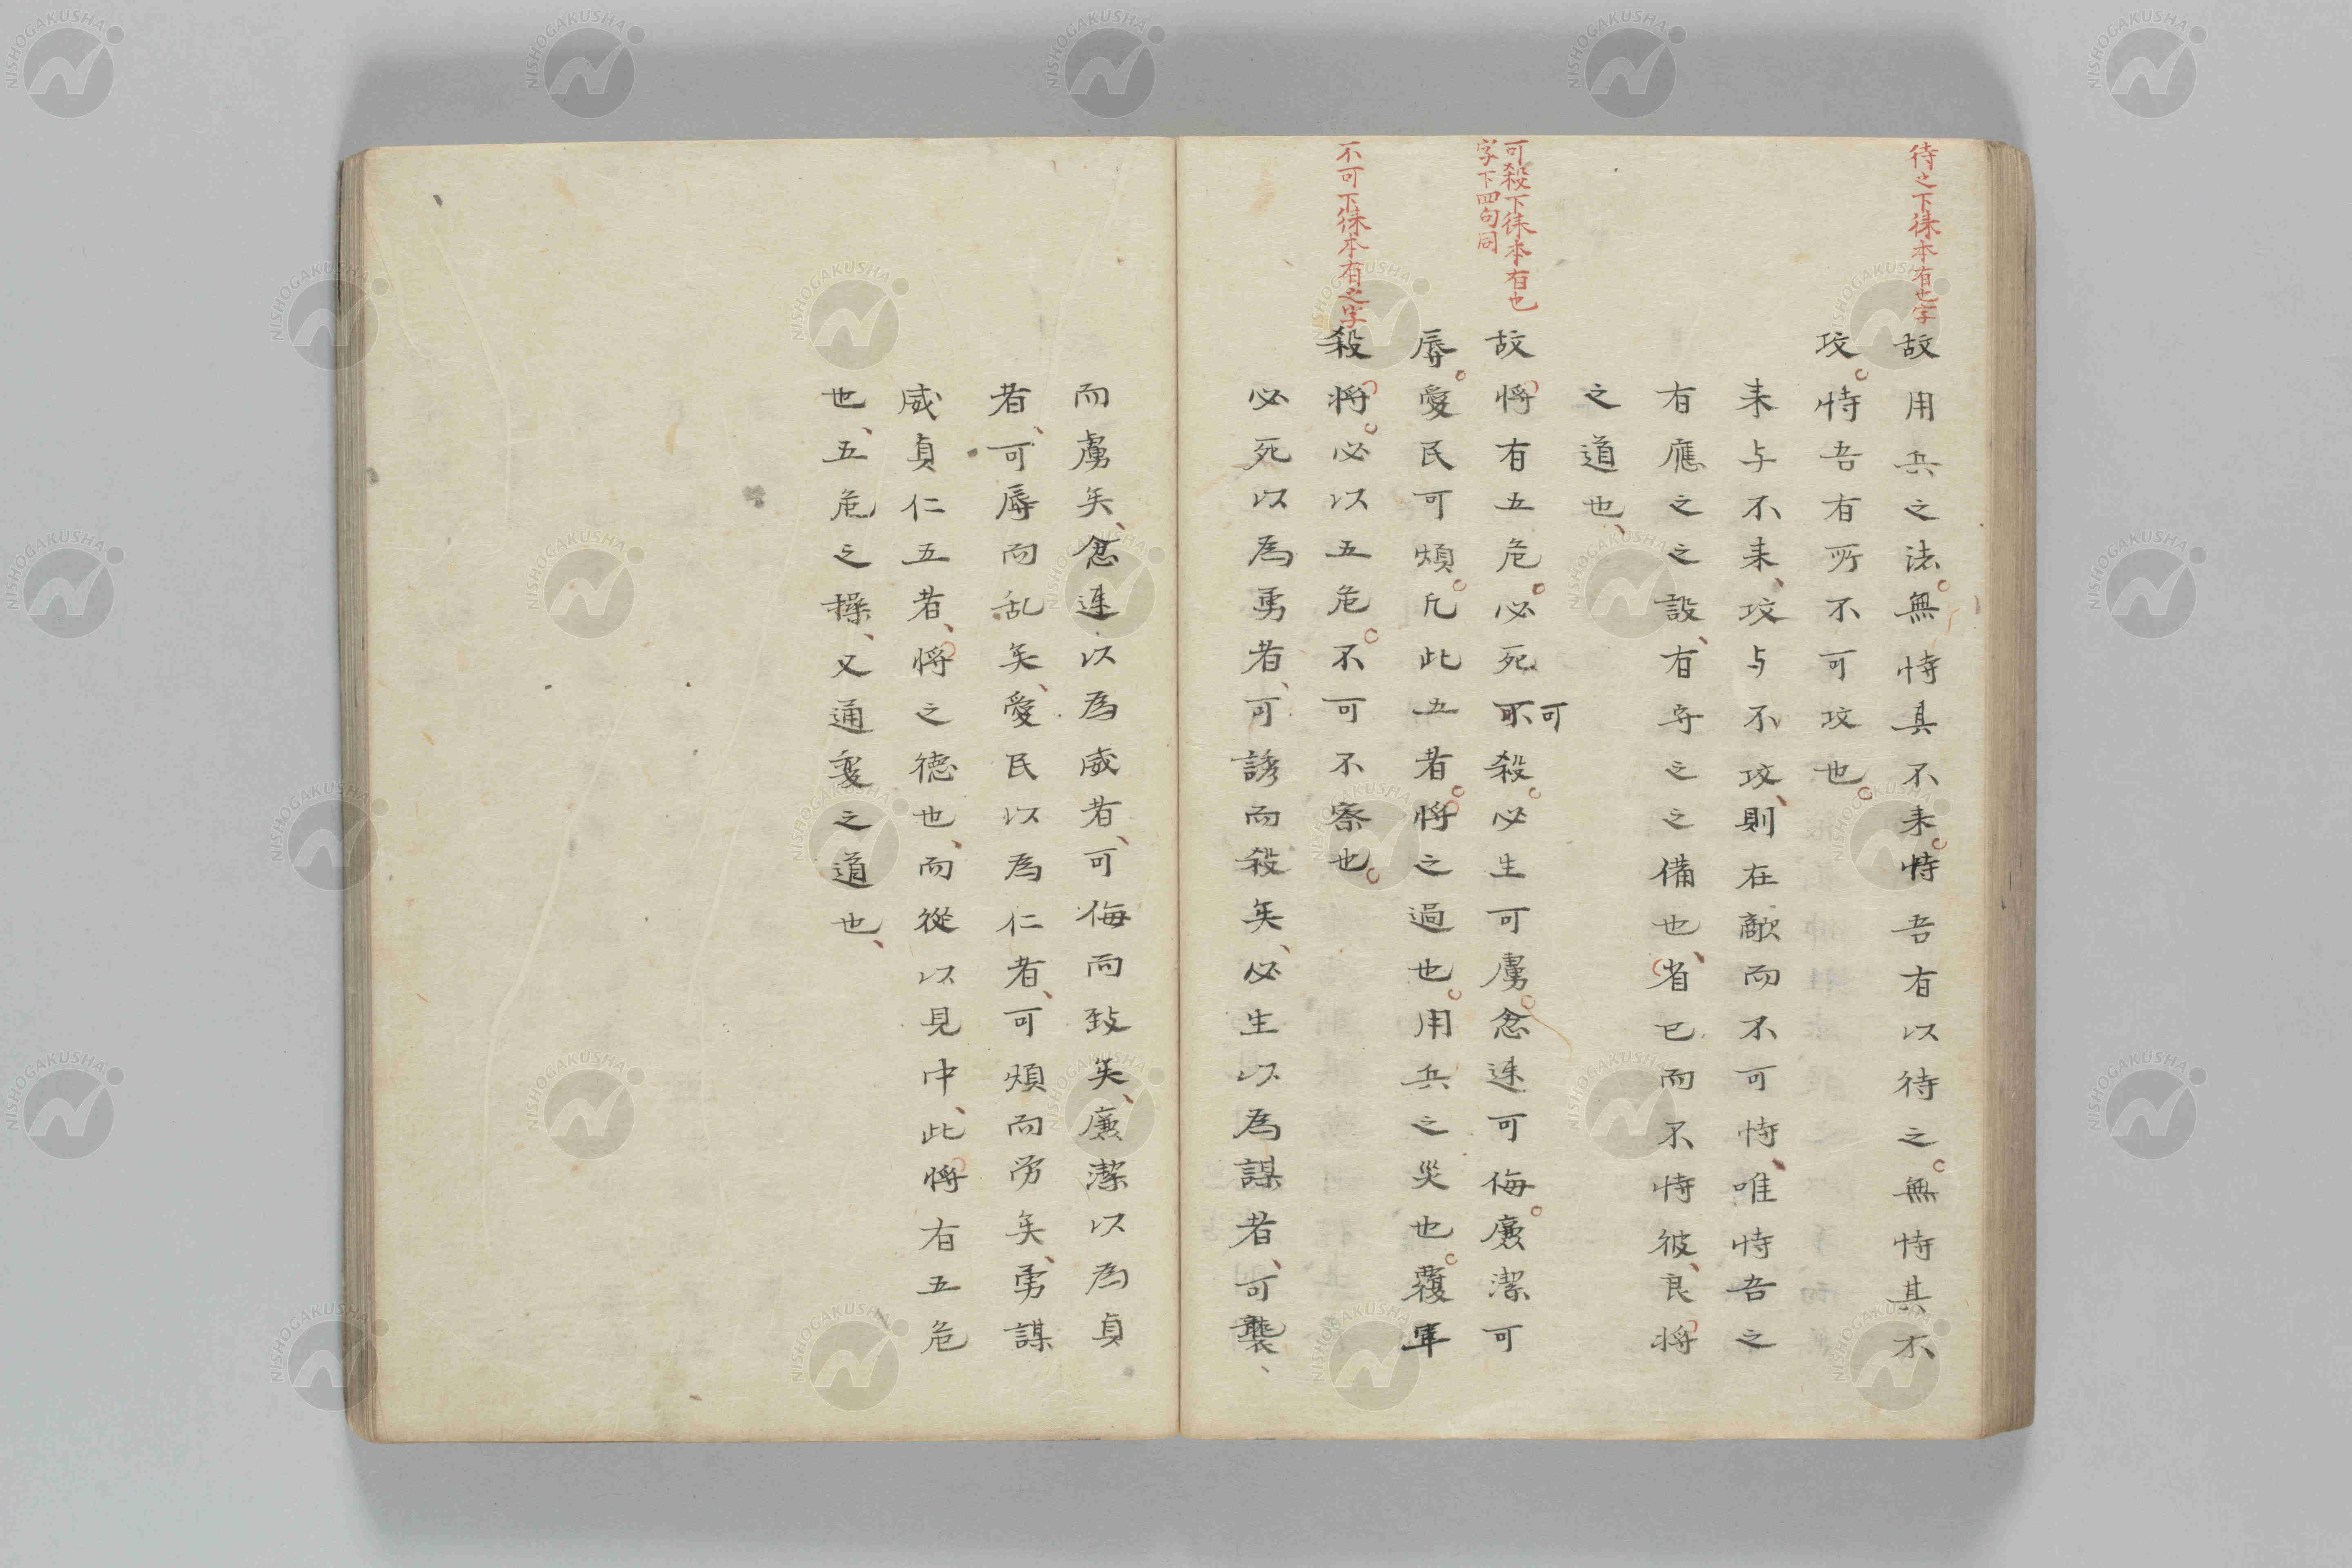 待之下徕本有也字
故用兵之法無恃其不来恃吾有以待之無恃其不
攻恃吾有所不可攻也
来与不来攻与不攻則在敵而不可恃唯恃吾之
有應之之設有守之之備也省已而不恃彼良将
之道也
可殺下徕本有也
字下四句同
故将有五危必死不可殺必生可虜忿速可侮廉潔可
可
辱愛民可煩凡此五者将之過也用兵之災也覆軍
不可下徕本有之字
殺将必以五危不可不察也
必死以為勇者可誘而殺矣必生以為謀者可襲
而虜矣忿速以為威者可侮而致矣廉潔以為貞
者可辱而乱矣愛民以為仁者可煩而労矣勇謀
威貞仁五者将之徳也而從以見中此将有五危
也五危之操又通変之道也
NISHOGAKUSHA